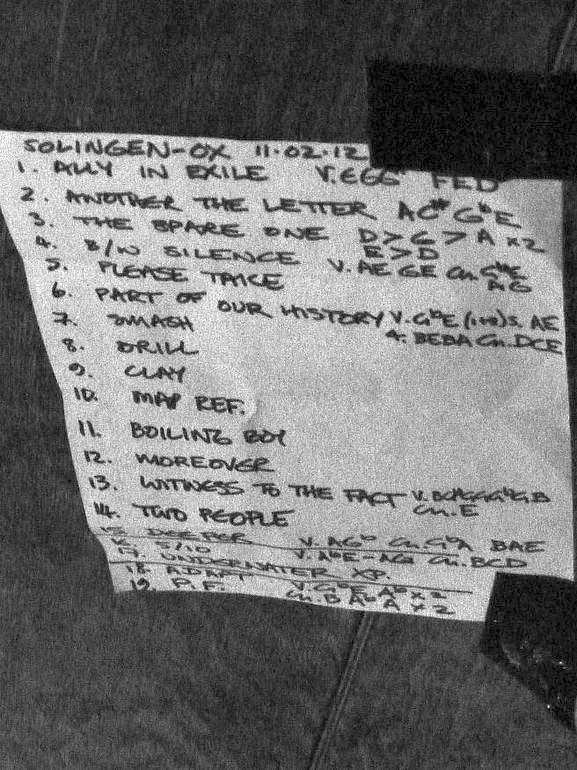 SOLINGEN-OX 11.02.12
1. ALLY IN EXILE V.EGG FED
2. ANOTHER THE LETTER AC# GbE
3. THE SPARE ONE D>G>A x2
E>D
4. B/W SILENCE
5. PLEASE TAKE V. AE GE Ch. GbE
AG
6. PART OF OUR HISTORY V. GbE (1+2)s. AE
4. BEBA Ch. DCE
7. SMASH
8. DRILL
9. CLAY
10. MAP REF.
11. BOILING BOY
12. MOREOVER
13. WITNESS TO THE FACT
Ch. E
14. TWO PEOPLE
15. DEEPER V. AGb Ch. GbA BAE
V. AbE-AG Ch. BCD
17. UNDERWATER XP.
18. ADAPT V. GbE Ab x2
19. P.F. Ch. B Ab A x2